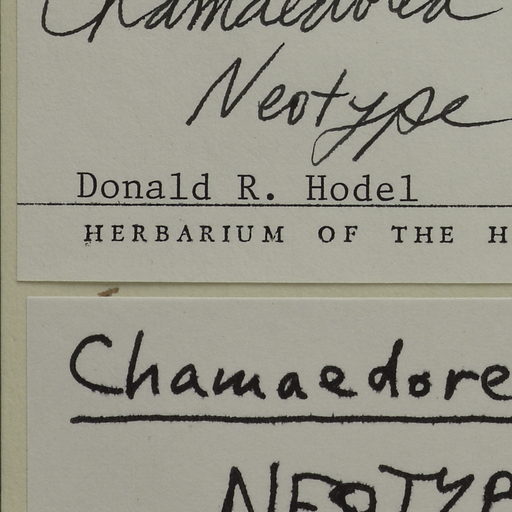 Chamaedorea
Neotype
Donald R. Hodel
HERBARIUM OF THE H
Chamaedore
NEOTYPE